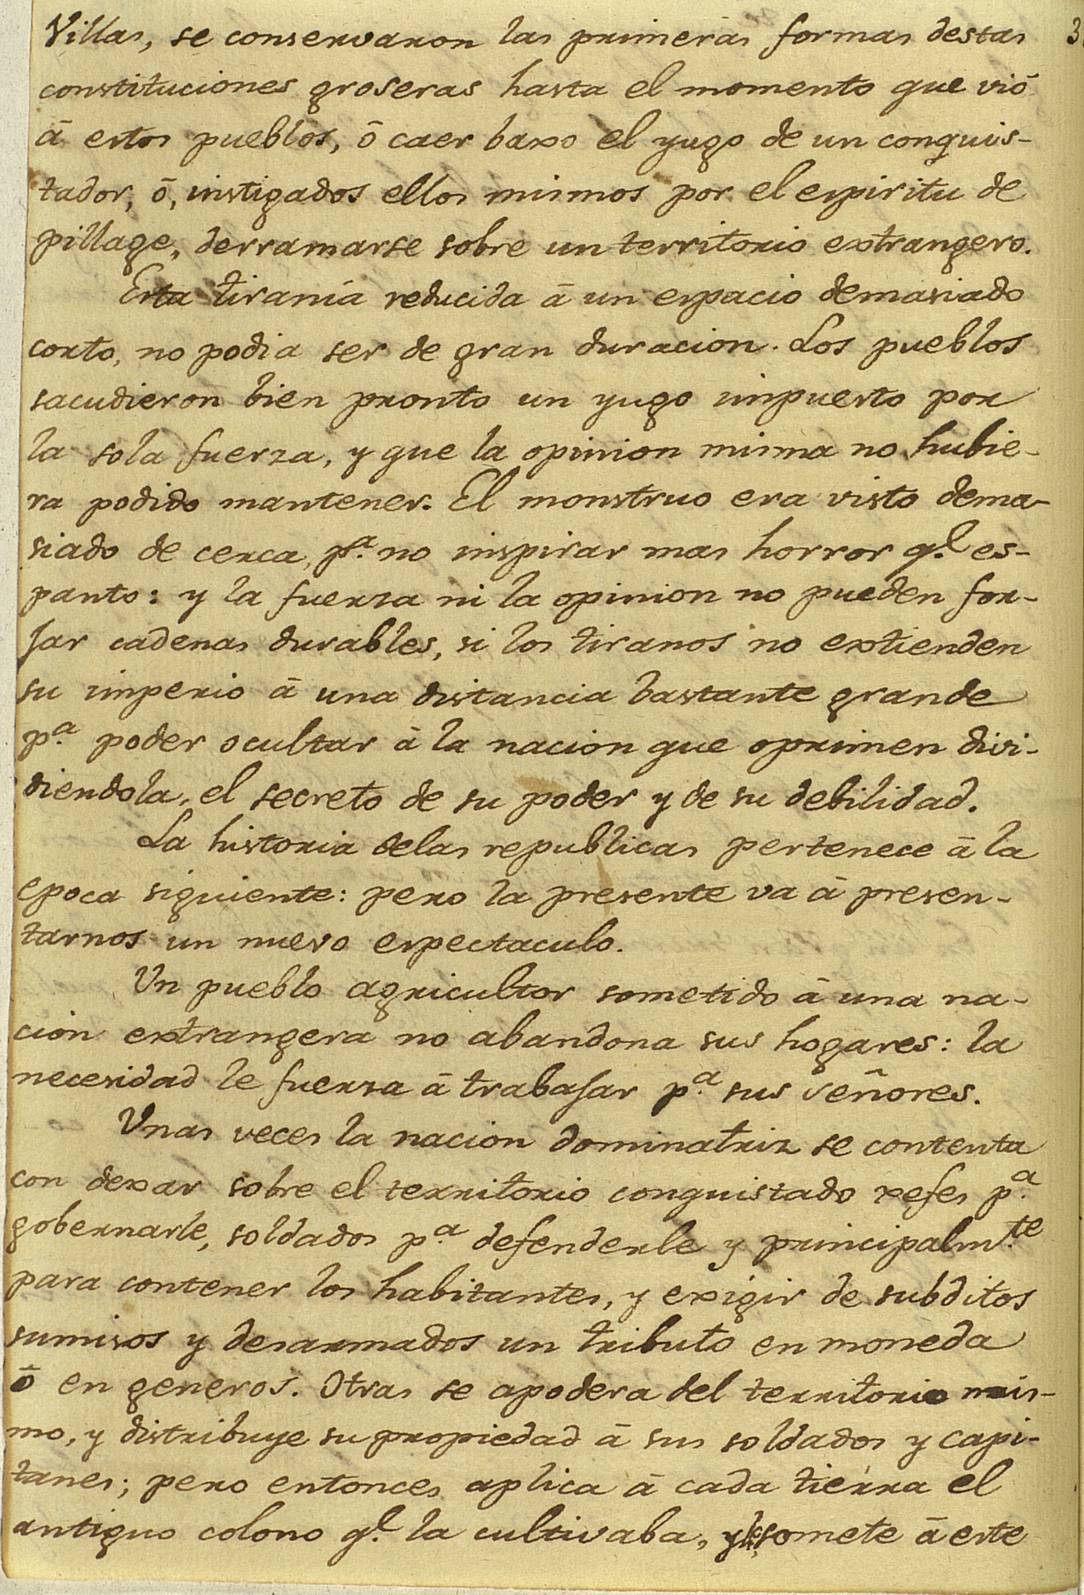 Villas, se conservaron las primeras formas destas
constituciones groseras hasta el momento que vió
á estos pueblos, ó caer baxo el yugo de un conquis-
tador, ó, instigados ellos mismos por el espiritu de
pillage, derramarse sobre un territorio extrangero.
Esta tiranía reducida á un espacio demasiado
corto, no podia ser de gran duracion. Los pueblos
sacudieron bien pronto un yugo impuesto por
la sola fuerza, y que la opinion misma no hubie-
ra podido mantener. El monstruo era visto dema-
siado de cerca, pª. no inspirar mas horror q.l es-
panto: y la fuerza ni la opinion no pueden for-
jar cadenas durables, si los tiranos no extienden
su imperio á una distancia bastante grande
p.ª poder ocultar á la nacion que oprimen divi-
diendola, el secreto de su poder y de su debilidad.
La historia delas republicas pertenece á la
epoca siguiente: pero la presente va á presen-
tarnos un nuevo espectaculo.
Un pueblo agricultor sometido á una na-
cion extrangera no abandona sus hogares: la
necesidad le fuerza á trabajar p.ª sus señores.
Unas veces la nacion dominatriz se contenta
con dexar sobre el territorio conquistado xefes p.ª
gobernarle, soldados p.ª defenderle y principalm.te
para contener los habitantes, y exigir de subditos
sumisos y desarmados un tributo en moneda
ó en generos. Otras se apodera del territorio mis-
mo, y distribuye su propiedad á sus soldados y capi-
tanes; pero entonces aplica á cada tierra el
antiguo colono q.l la cultivaba, y somete á este
3